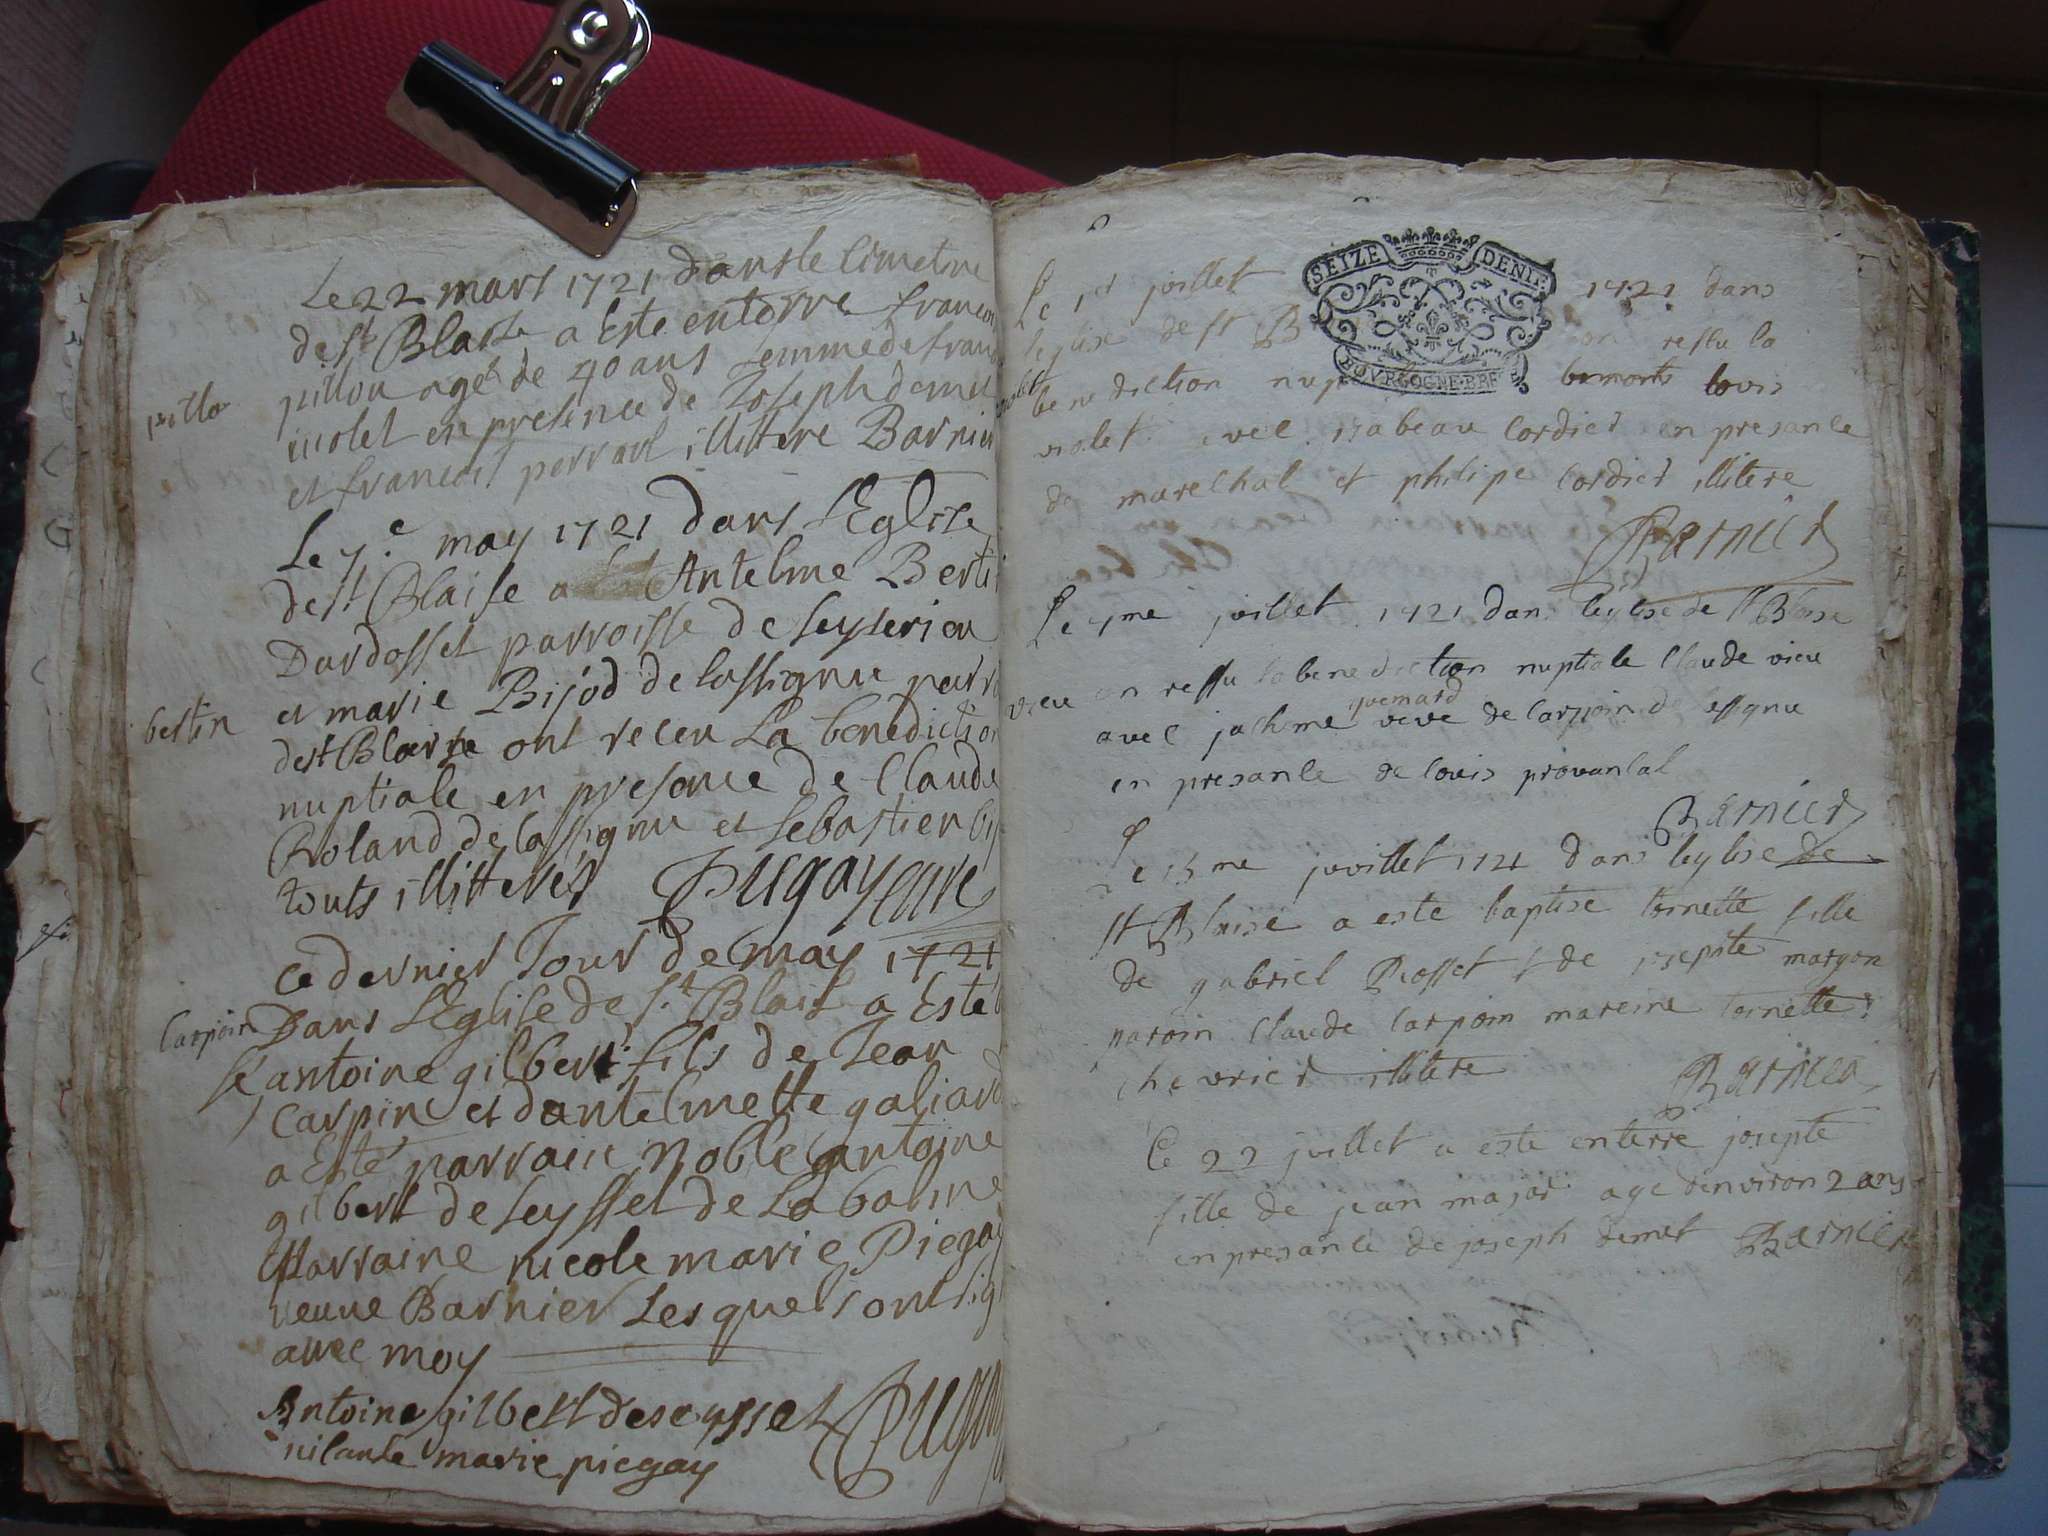 Le 22 mars 1721 dans le cimetire
de st Blaise a Este enterre francoi
pillou agée de 40 ans femme de fran
pillo
uiolet en presence de Joseph demu
et francois perraul illittere Barnier
Le 7.e may 1721 dans L'Eglise
de st Blaise a Este Antelme Berti
Dardosset parroisse de seyserieu
et marie Bijod de lassignu parro
bertin
de st Blaise ont receu La benediction
nuptiale en presence de Claude
Roland de lassignu et sebastien bij
touts illitterés Dugay curé
ce dernier Jour de may 1721
carpin Dans L'Eglise de st Blaise a Esté b
sé antoine gilbert fils de Jean
carpin et dantelmette galiard
a Esté parrain noble antoine
gilbert de seyssel de La balme
Marraine nicole marie Piegay
veuue Barnier Lesquels ont sig
auec moy
Antoine gilbert deseyssel Dugay
nicaule marie piegay
SEIZE DENIE.
BOVRGOGNE·BRE
Le 1er juillet 1721 dans
leglise de st B on ressu la
violet
benediction nup louis
violet avec isabeau cordier en presance
de marechal et philipe cordier illitere
Barnier
Le 7me juillet 1721 dans leglise de st Blaise
vieu on ressu la benediction nuptiale Claude vieu
quemard
avec jachme veve de carpoin d essignu
en presance de louis provancal
Barnier
Le 15me juuillet 1721 dans leglise de
st Blaise a este baptise toinette fille
de gabriel Rosset & de josepte margon
paroin Claude carpoin mareine toinette
chevrier illitere
Barnier
Le 22 juillet a este enterré josepte
fille de jean major age denviron 2 ans
en presance de joseph demet Barnier